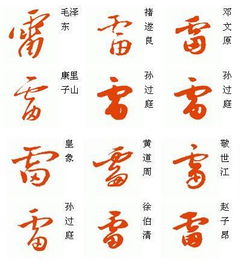 雷 毛泽东
雷 褚遂良
雷 邓文原
雷 康里子山
雷 孙过庭
雷 孙过庭
雷 皇象
雷 黄道周
雷 敬世江
雷 孙过庭
雷 徐伯清
雷 赵子昂